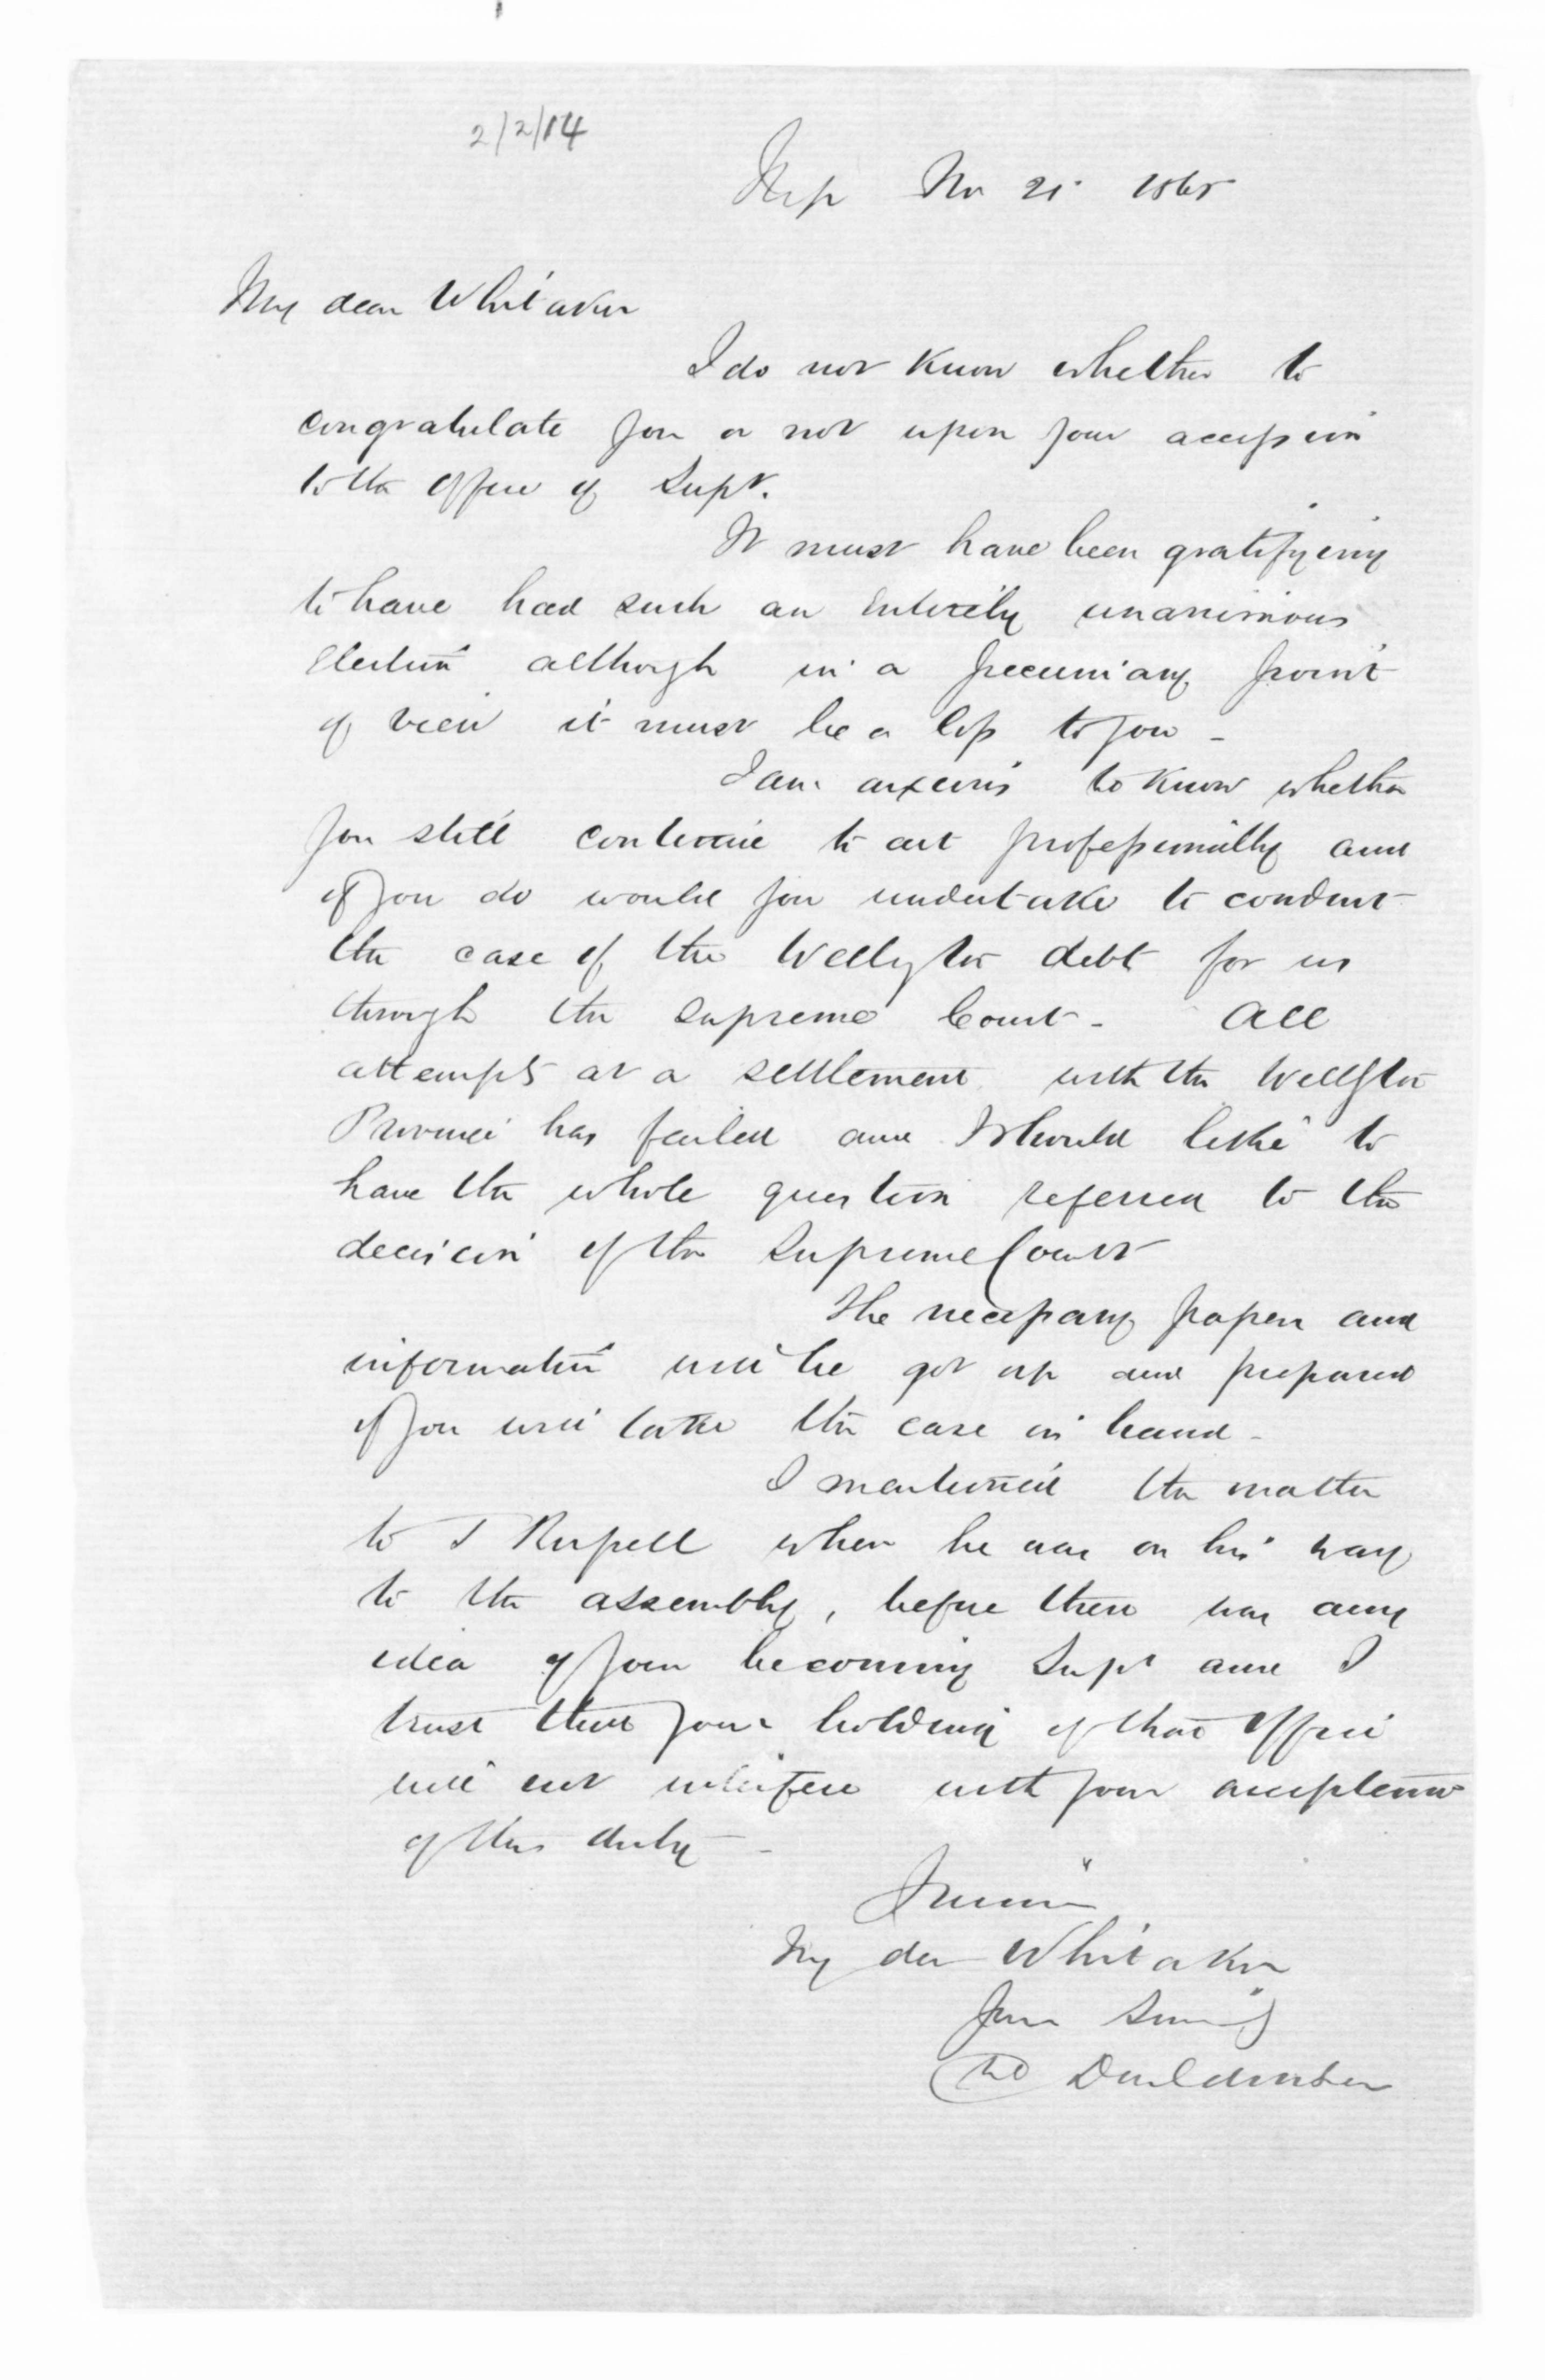 2/2/14
Nap Nov 21 1865
My dear Whitaker
I do not know whether to
congratulate you or not upon your accession
to the Office of Supt.
It must have been gratifying
to have had such an Entirely unanimous
Election although in a pecuniary point
of view it must be a loss to you -
I am anxious to know whether
you still continue to act professionally and
if you do would you undertake to conduct
the case of the Wellington debt for us
through the Supreme Court - All
attempts at a settlement with the Wellgton
Province has failed and I should like to
have the whole question referred to the
decision of the Supreme Court
The necessary papers and
information will be got up and prepared
if you will take the case in hand -
I mentioned the matter
to T Russell when he was on his way
to the assembly, before there was any
idea of your becoming Supt and I
trust that your holding of that Office
will not interfere with your acceptance
of this duty -
My dear Whitaker
Yours Sincerely